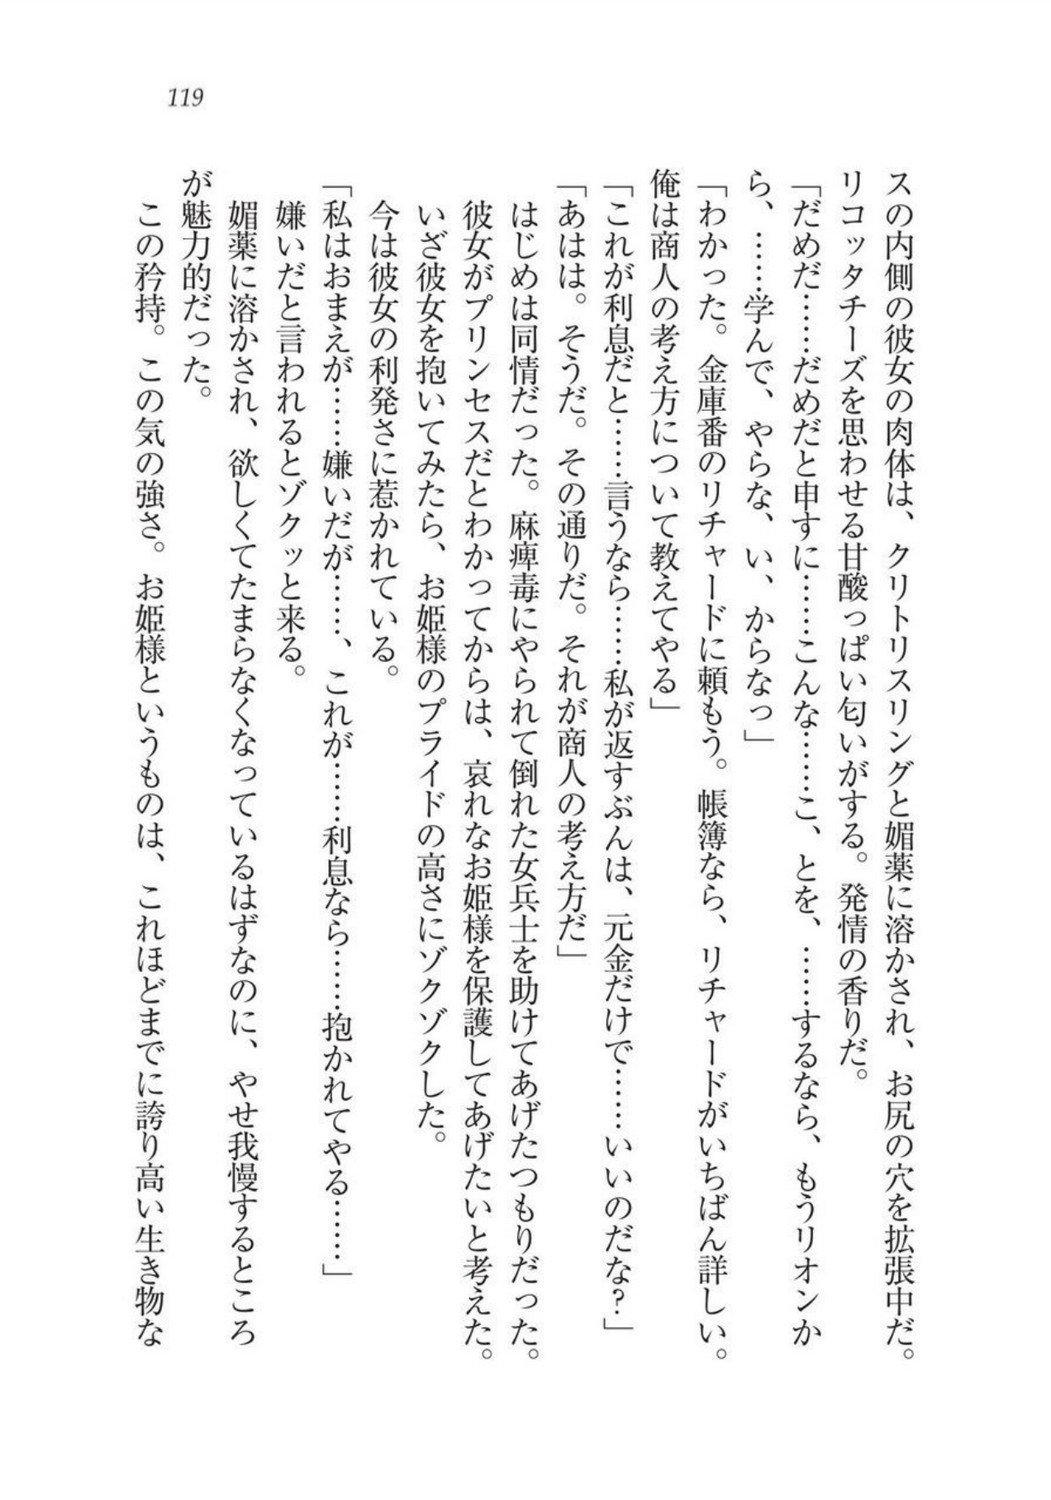 119
スの内側の彼女の肉体は、クリトリスリングと媚薬に溶かされ、お尻の穴を拡張中だ。
リコッタチーズを思わせる甘酸っぱい匂いがする。発情の香りだ。
「だめだ……だめだと申すに……こんな……こ、とを、……するなら、もうリオンか
ら、……学んで、やらな、い、からなっ」
「わかった。金庫番のリチャードに頼もう。帳簿なら、リチャードがいちばん詳しい。
俺は商人の考え方について教えてやる」
「これが利息だと……言うなら……私が返すぶんは、元金だけで……いいのだな?」
「あはは。そうだ。その通りだ。それが商人の考え方だ」
はじめは同情だった。麻痺毒にやられて倒れた女兵士を助けてあげたつもりだった。
彼女がプリンセスだとわかってからは、哀れなお姫様を保護してあげたいと考えた。
いざ彼女を抱いてみたら、お姫様のプライドの高さにゾクゾクした。
今は彼女の利発さに惹かれている。
「私はおまえが……嫌いだが……、これが……利息なら……抱かれてやる……」
嫌いだと言われるとゾクッと来る。
媚薬に溶かされ、欲しくてたまらなくなっているはずなのに、やせ我慢するところ
が魅力的だった。
この矜持。この気の強さ。お姫様というものは、これほどまでに誇り高い生き物な